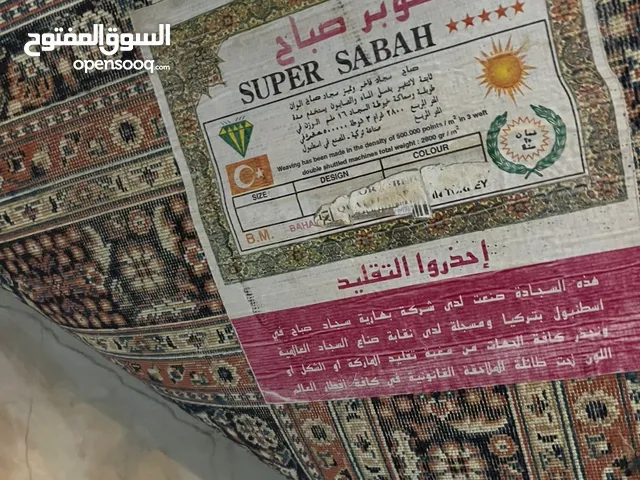 السوق المفتوح
opensooq.com
سوبر صباح
SUPER SABAH
صباح سجاد فاخر
صناعة تركية
Weaving has been made in the density of 500.000 points / m² in 3 weft
double shuttled machines total weight : 2800 gr / m²
SIZE :
DESIGN
COLOUR
B.M.
إحذروا التقليد
هذه السجادة صنعت لدى شركة بهارية سجاد صباح في
اسطنبول بتركيا ومسجلة لدى نقابة صناع السجاد العالمية
ونحذر كافة الجهات من مغبة تقليد الماركة او الشكل او
اللون تحت طائلة الملاحقة القانونية في كافة أقطار العالم